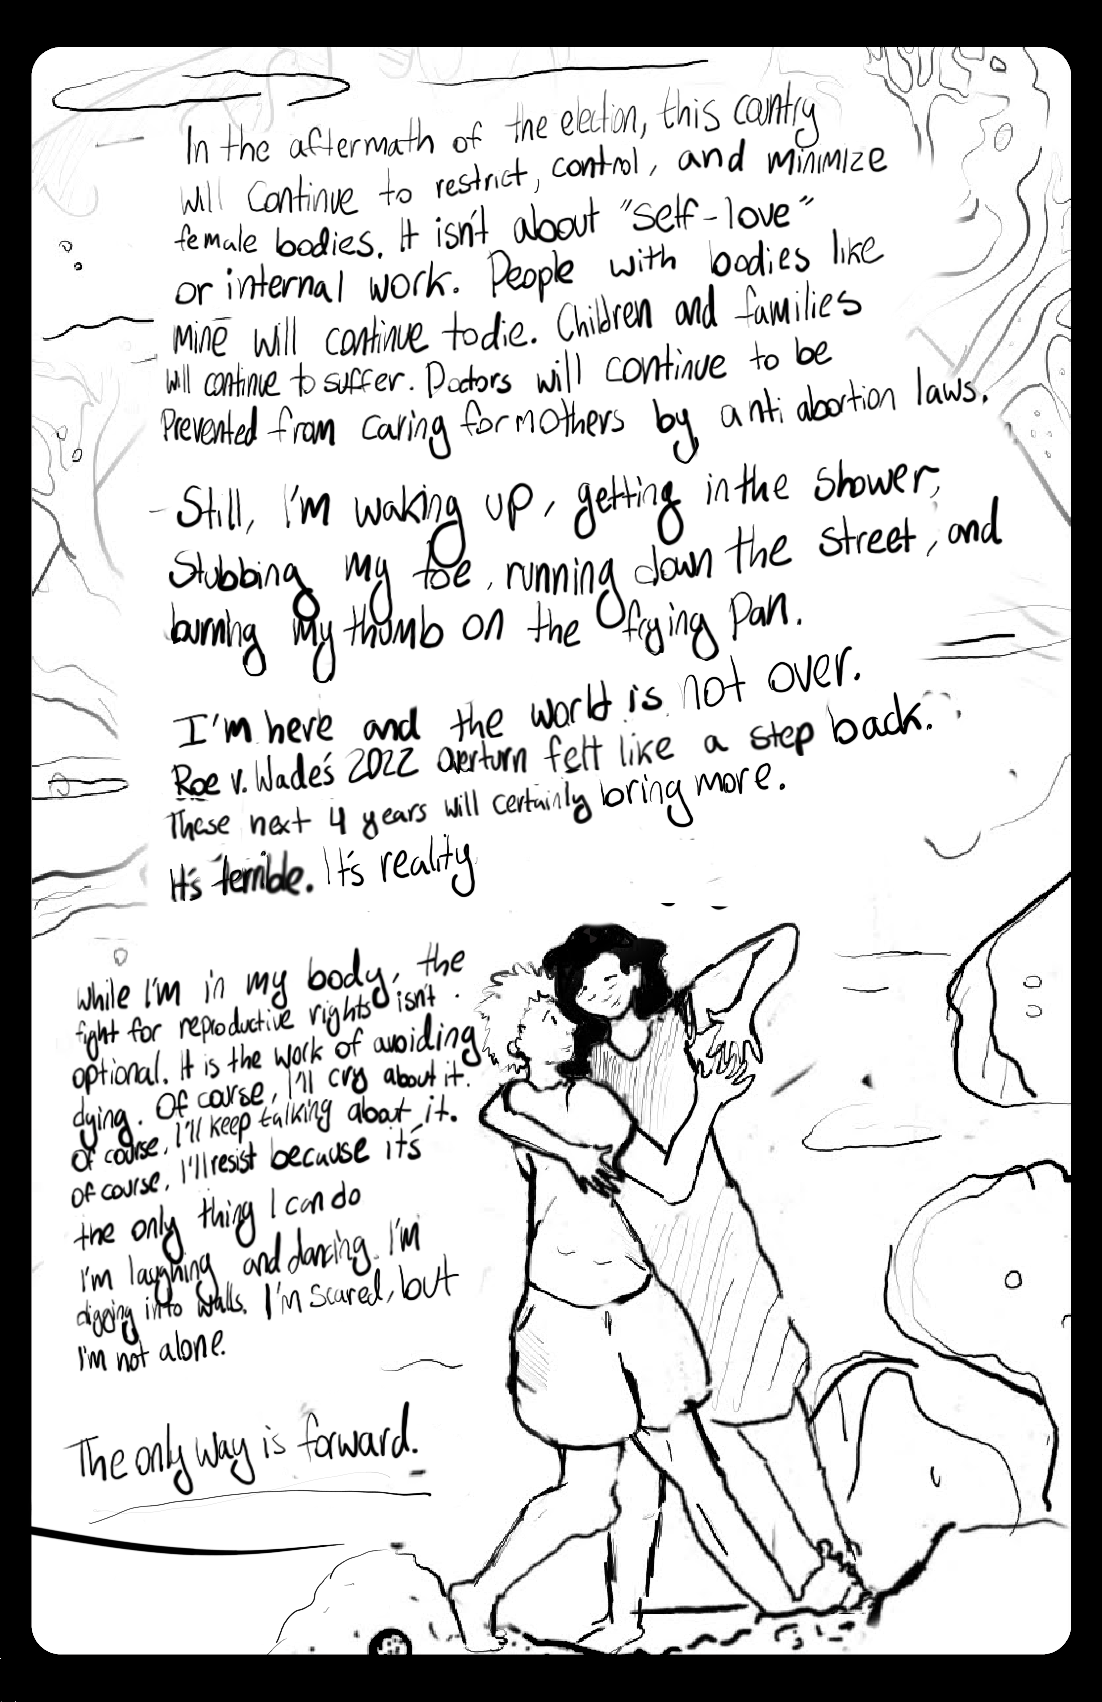 In the aftermath of the election, this country
will continue to restrict, control, and minimize
female bodies. It isn't about "self-love"
or internal work. People with bodies like
mine will continue to die. Children and families
will continue to suffer. Doctors will continue to be
Prevented from caring for mothers by anti abortion laws.
Still, I'm waking up, getting in the shower,
Stubbing my toe, running down the street, and
burning my thumb on the frying pan.
I'm here and the world is not over.
Roe v. Wade's 2022 overturn felt like a step back.
These next 4 years will certainly bring more.
It's terrible. It's reality
While I'm in my body, the
fight for reproductive rights isn't
optional. It is the work of avoiding
dying. Of course, I'll cry about it.
Of course, I'll keep talking about it.
Of course, I'll resist because it's
the only thing I can do
I'm laughing and dancing. I'm
digging into walls. I'm scared, but
I'm not alone.
The only way is forward.